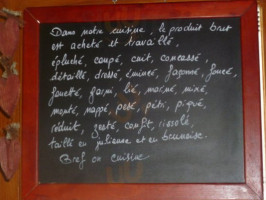 Dans notre cuisine, le produit brut
est acheté et travaillé,
épluché, coupé, cuit, concassé,
détaillé, dressé, émincé, façonné, foncé,
fouetté, garni, lié, mariné, mixé,
monté, nappé, pesé, pétri, piqué,
réduit, resté, confit, rissolé,
taillé en julienne et en brunoise.
Bref on cuisine